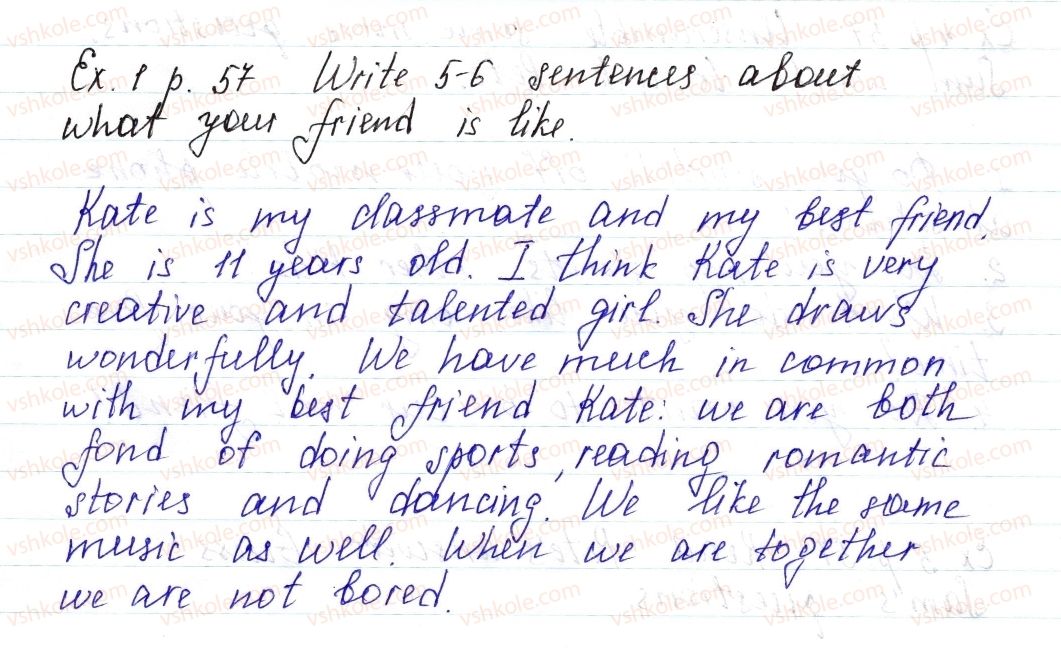 Ex. 1 p. 57 Write 5-6 sentences about
what your friend is like.
Kate is my classmate and my best friend.
She is 11 years old. I think Kate is very
creative and talented girl. She draws
wonderfully. We have much in common
with my best friend Kate: we are both
fond of doing sports, reading romantic
stories and dancing. We like the same
music as well. When we are together
we are not bored.